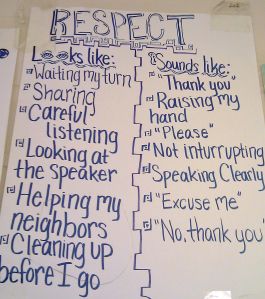 RESPECT
Looks like:
Waiting my turn
Sharing
Careful
listening
Looking at
the speaker
Helping my
neighbors
Cleaning up
before I go
Sounds like:
"Thank you"
Raising my
hand
"Please"
Not inturrupting
Speaking Clearly
"Excuse me"
"No, thank you"